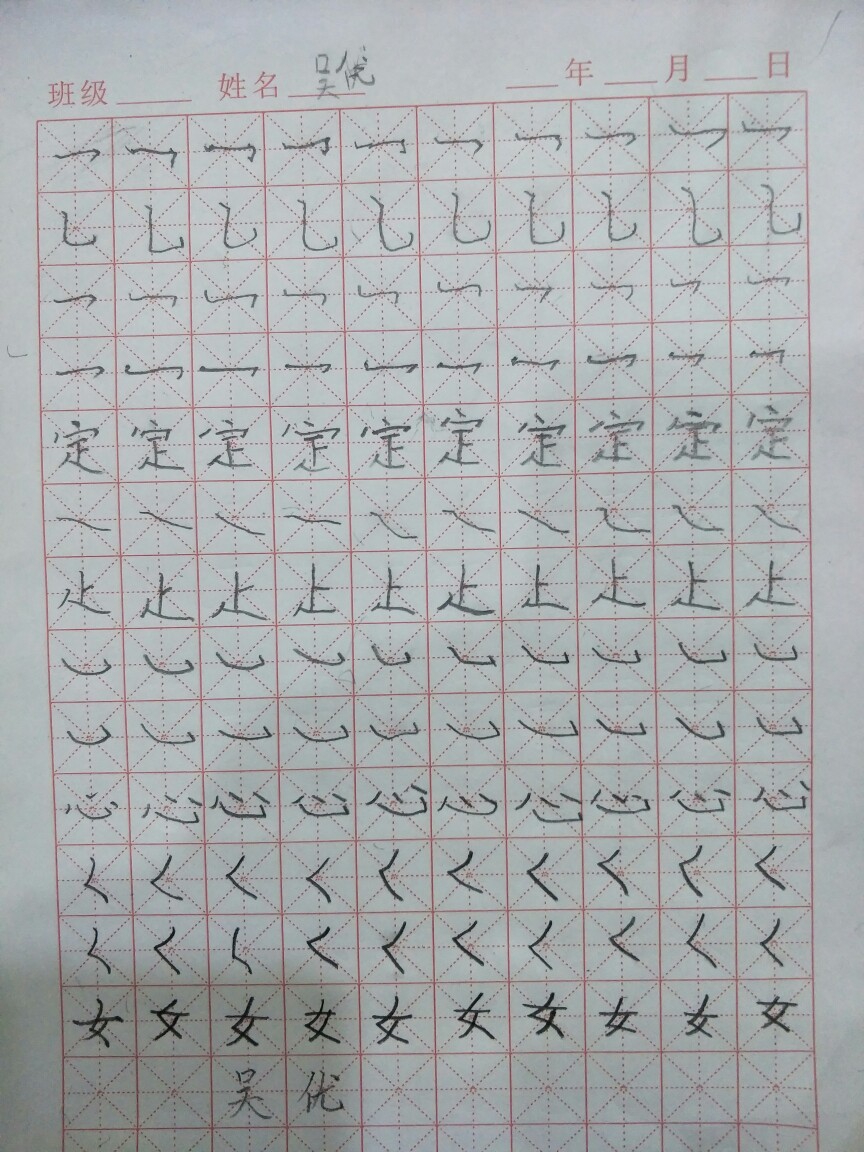 班级 姓名 吴优 年 月 日
乛 乛 乛 乛 乛 乛 乛 乛 乛 乛
乚 乚 乚 乚 乚 乚 乚 乚 乚 乚
乛 乛 乛 乛 乛 乛 乛 乛 乛 乛
乛 乛 乛 乛 乛 乛 乛 乛 乛 乛
定 定 定 定 定 定 定 定 定 定
㇏ ㇏ ㇏ ㇏ ㇏ ㇏ ㇏ ㇏ ㇏ ㇏
止 止 止 止 止 止 止 止 止 止
㇃ ㇃ ㇃ ㇃ ㇃ ㇃ ㇃ ㇃ ㇃ ㇃
㇃ ㇃ ㇃ ㇃ ㇃ ㇃ ㇃ ㇃ ㇃ ㇃
心 心 心 心 心 心 心 心 心 心
㇛ ㇛ ㇛ ㇛ ㇛ ㇛ ㇛ ㇛ ㇛ ㇛
㇛ ㇛ ㇛ ㇛ ㇛ ㇛ ㇛ ㇛ ㇛ ㇛
女 女 女 女 女 女 女 女 女 女
吴 优